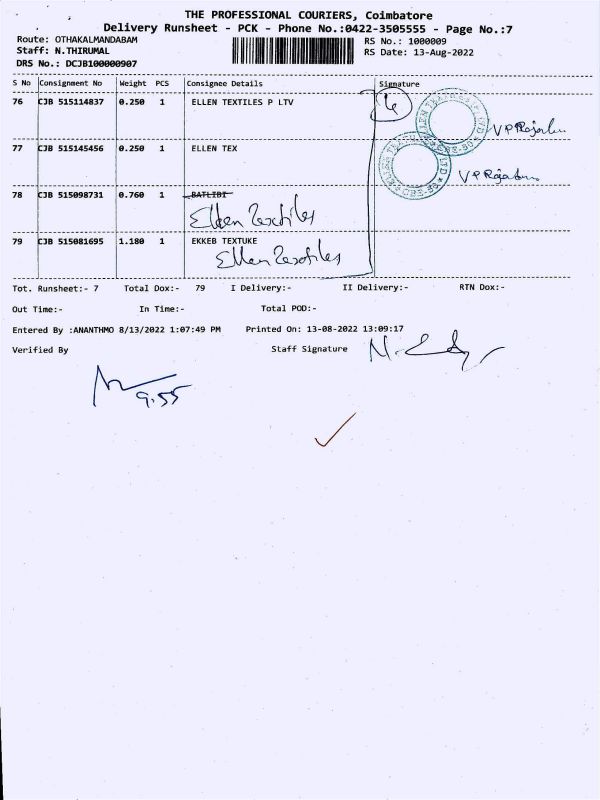 THE PROFESSIONAL COURIERS, Coimbatore
Delivery Runsheet - PCK - Phone No.:0422-3505555 - Page No.:7
Route: OTHAKALMANDABAM RS No.: 1000009
Staff: N.THIRUMAL RS Date: 13-Aug-2022
DRS No.: DCJB100000907
S No Consignment No Weight PCS Consignee Details Signature
76 CJB 515114837 0.250 1 ELLEN TEXTILES P LTV 4
77 CJB 515145456 0.250 1 ELLEN TEX
78 CJB 515098731 0.760 1 BATLIBI
Ellen Textiles
79 CJB 515081695 1.180 1 EKKEB TEXTUKE
Ellen Textiles
Tot. Runsheet:- 7 Total Dox:- 79 I Delivery:- II Delivery:- RTN Dox:-
Out Time:- In Time:- Total POD:-
Entered By :ANANTHMO 8/13/2022 1:07:49 PM Printed On: 13-08-2022 13:09:17
Verified By Staff Signature
9.55